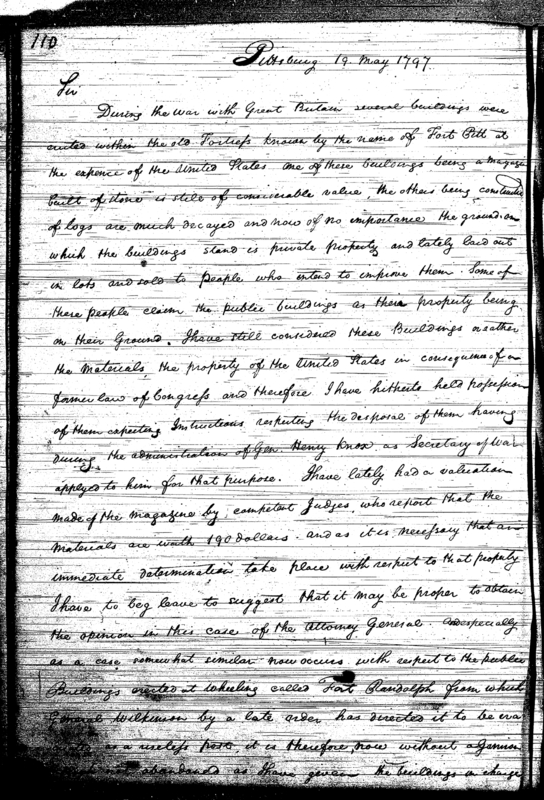 110
Pittsburg 19. May 1797
Sir
During the war with Great Britain several buildings were
erected within the old Fortress known by the name of Fort Pitt at
the expence of the United States one of these buildings being a magazine
built of stone is still of considerable value, the others being constructed
of logs are much decayed and now of no importance the ground on
which the buildings stand is private property and lately laid out
in lots and sold to people who intend to improve them. Some of
these people claim the public buildings as their property being
on their Ground. I have still considered these Buildings or rather
the Materials, the property of the United States in consequence of a
former law of Congress and therefore I have hitherto held possession
of them expecting Instructions respecting the disposal of them having
during the administration of Gen. Henry Knox as Secretary of War
applyed to him for that purpose. I have lately had a valuation
made of the magazine by competent Judges, who report that the
materials are worth 190 dollars. and as it is necessary that an
immediate determination take place with respect to that property
I have to beg leave to suggest that it may be proper to obtain
the opinion in this case of the Attorney General. and especially
as a case somewhat similar now occurs with respect to the public
Buildings erected at Wheeling called Fort Randolph from which
General Wilkinson by a late order has directed it to be eva
as a useless post, it is therefore, now without a Garrison
not abandoned as I have given the buildings in charge